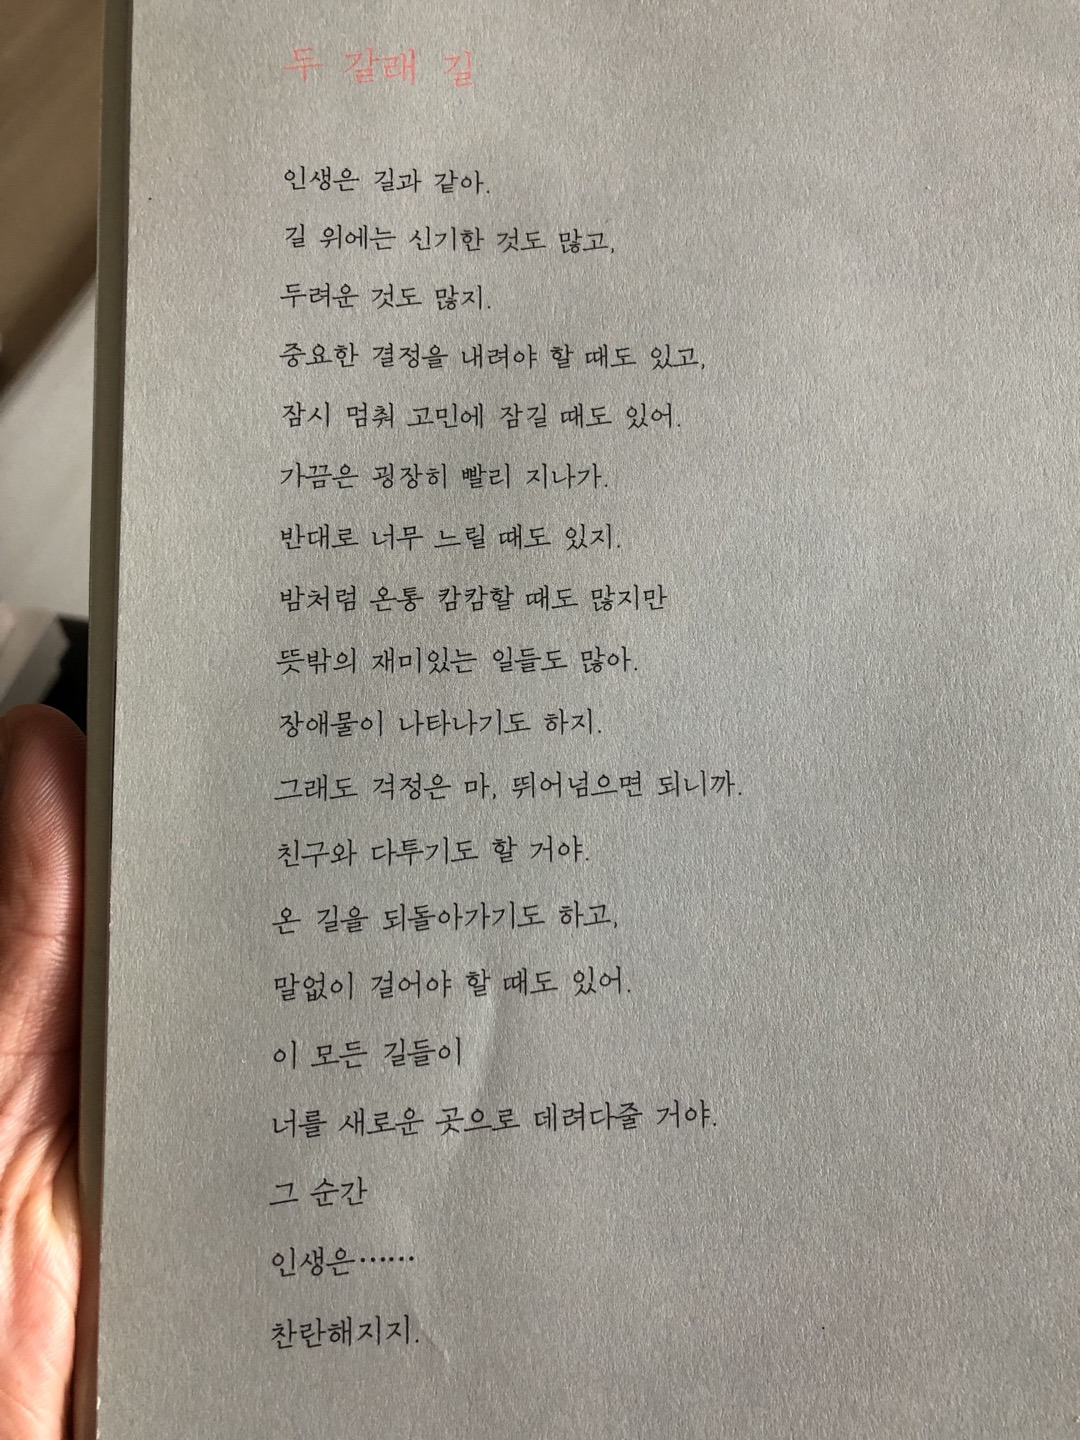 두 갈래 길
인생은 길과 같아.
길 위에는 신기한 것도 많고,
두려운 것도 많지.
중요한 결정을 내려야 할 때도 있고,
잠시 멈춰 고민에 잠길 때도 있어.
가끔은 굉장히 빨리 지나가.
반대로 너무 느릴 때도 있지.
밤처럼 온통 캄캄할 때도 많지만
뜻밖의 재미있는 일들도 많아.
장애물이 나타나기도 하지.
그래도 걱정은 마, 뛰어넘으면 되니까.
친구와 다투기도 할 거야.
온 길을 되돌아가기도 하고,
말없이 걸어야 할 때도 있어.
이 모든 길들이
너를 새로운 곳으로 데려다줄 거야.
그 순간
인생은……
찬란해지지.